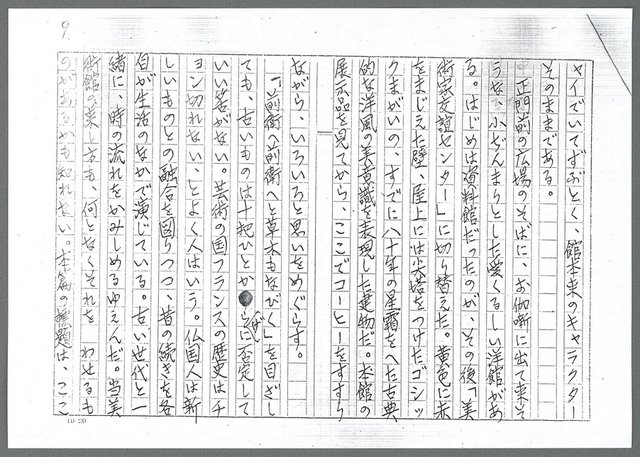 9
ャイでいてずぶとく、館本来のキャラクター
そのままである。
正門前の広場のそばに、お伽噺に出て来そ
うな、小ぢんまりとした愛くるしい洋館があ
る。はじめは資料館だったのが、その後「美
術家友誼センター」に切り替えた。黄色に朱
をまじえた壁、屋上には尖塔をつけたゴシッ
クまがいの、すでに八十年の星霜をへた古典
的な洋風の美意識を表現した建物だ。本館の
展示品を見てから、ここでコーヒーをすすり
ながら、いろいろと思いをめぐらす。
「前衛へ前衛へと草木もなびく」を目ざし
ても、古いものは十把ひとからに否定して
いい筈がない。芸術の国フランスの歴史はチ
ョン切れない、とよく人はいう。仏国人は新
しいものとの融合を図りつつ、昔の続きを各
自が生活のなかで演じている。古い世代と一
緒に、時の流れをかみしめるゆえんだ。当美
術館の来し方も、何となくそれを わせるも
のがあるかも知れない。本篇の標題は、ここ
10 20